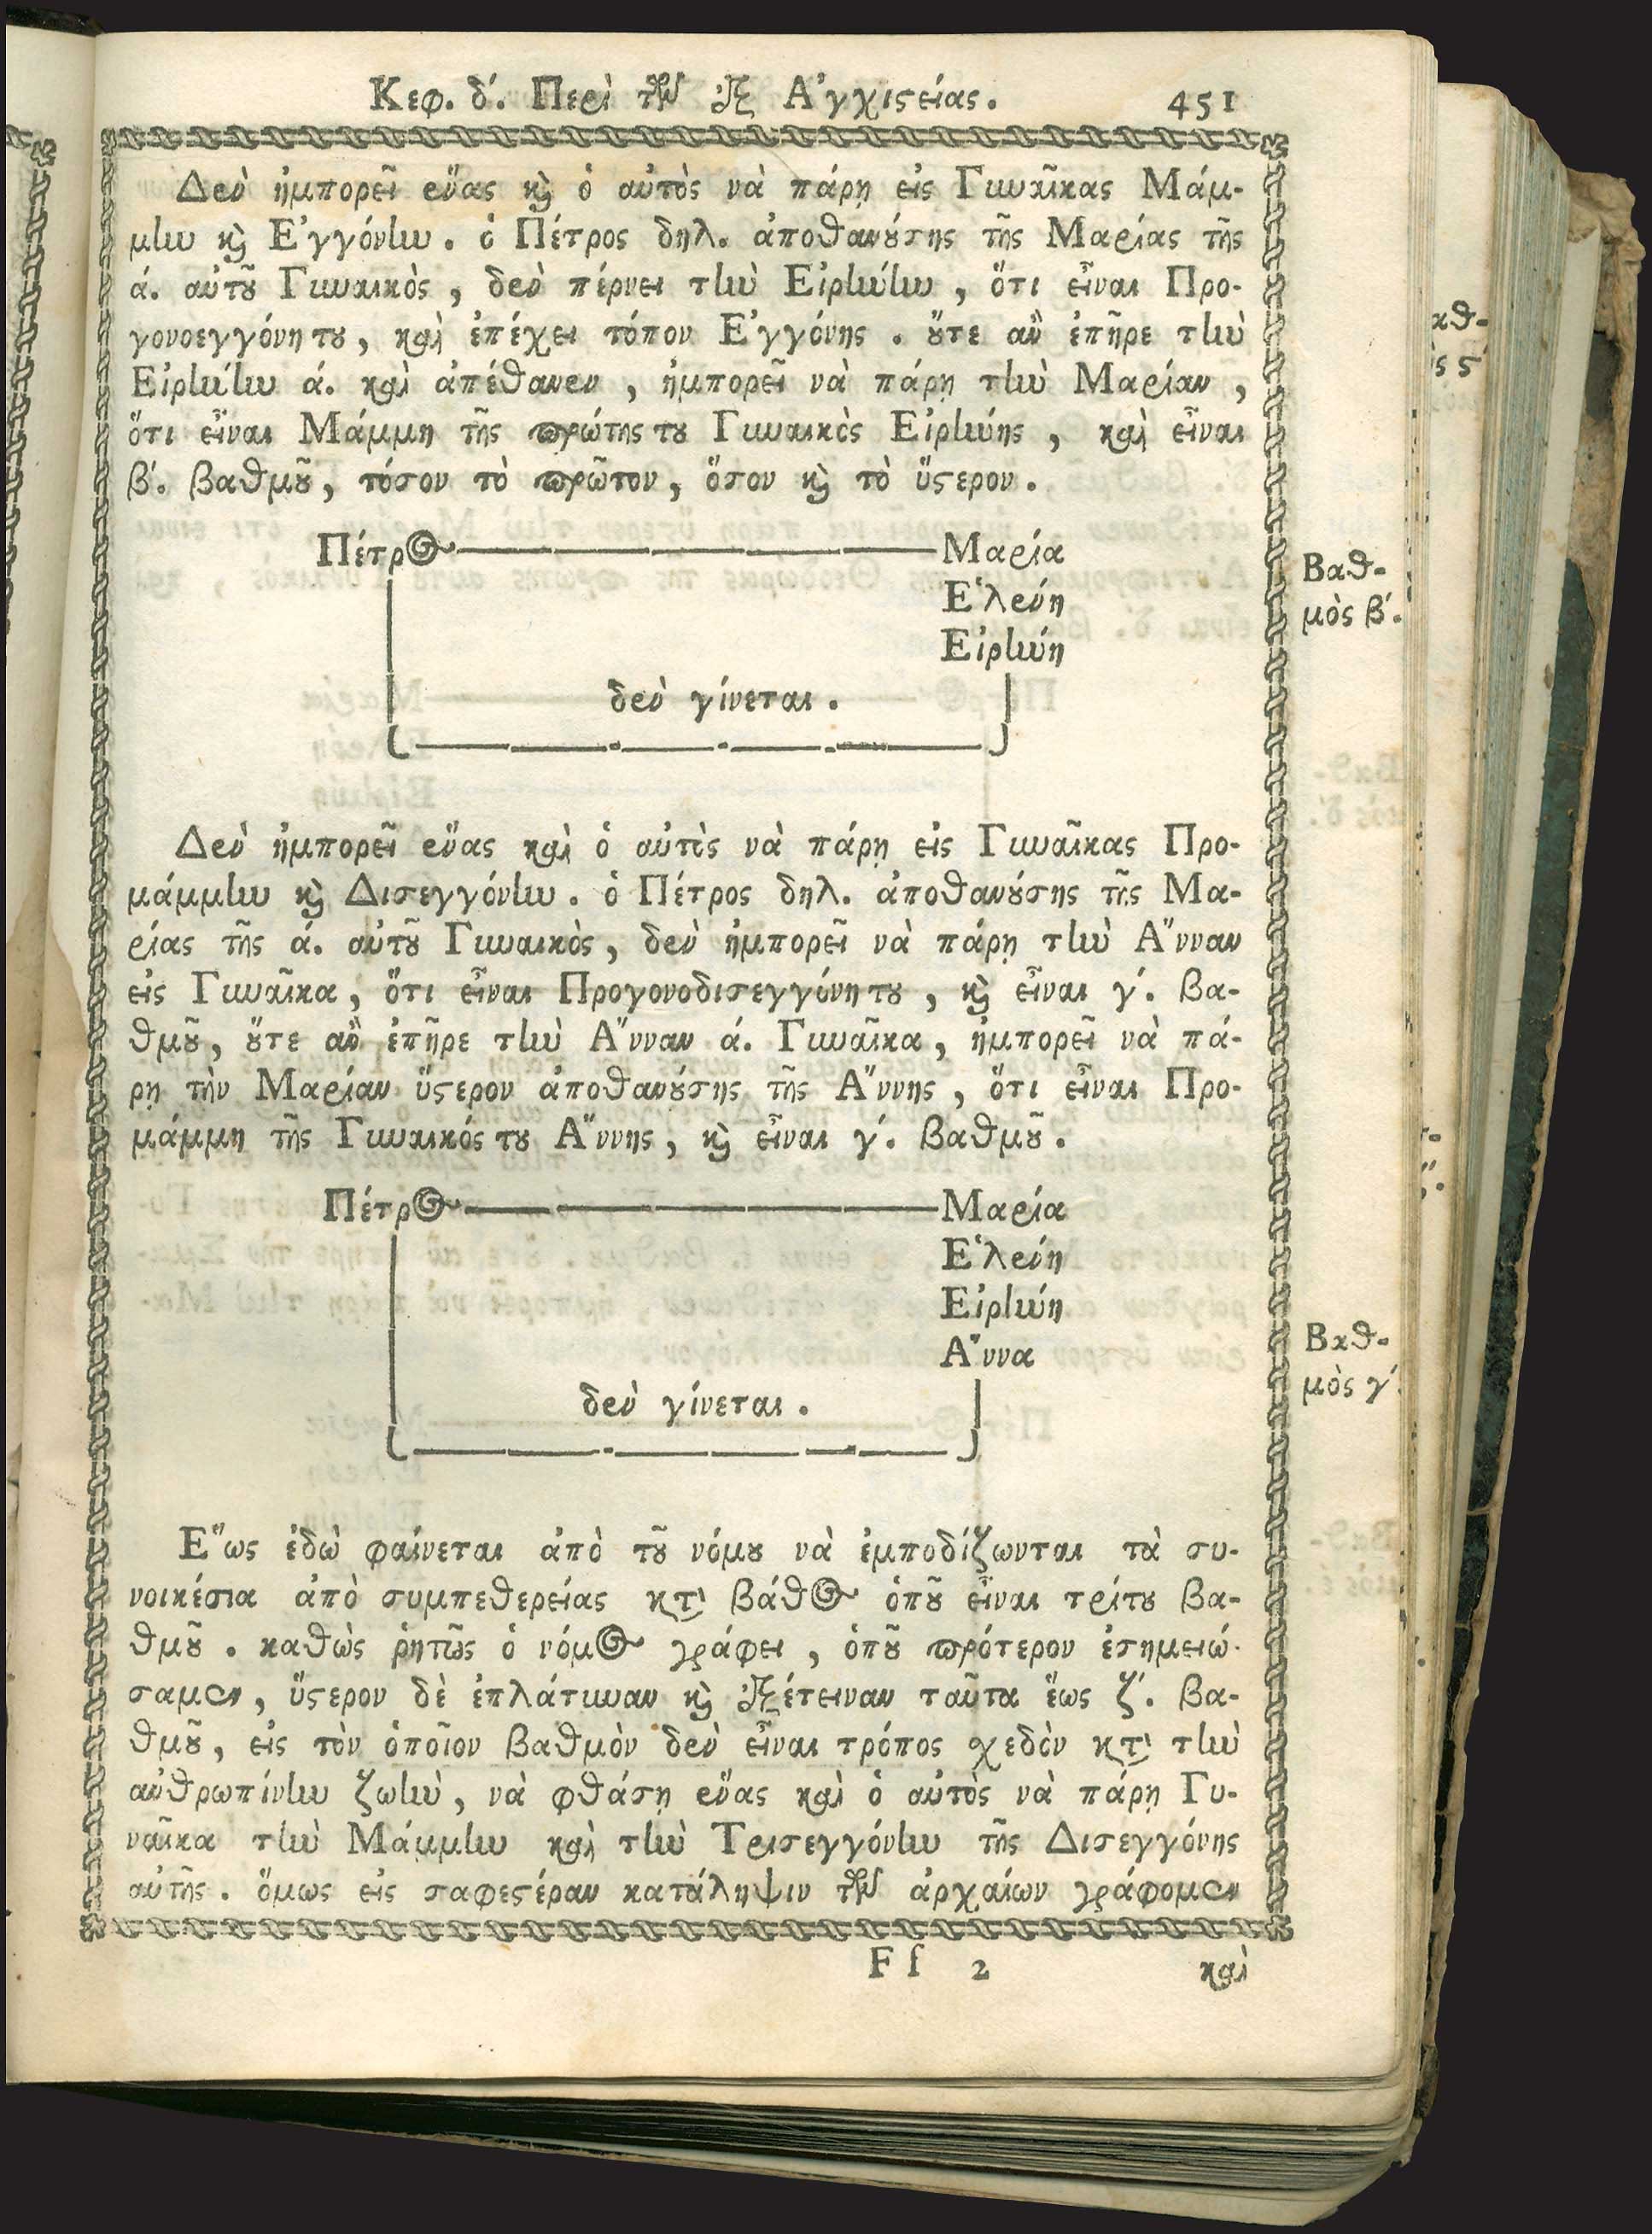 Κεφ. δ'. Περὶ τῶν ἐξ Ἀγχιστείας. 451
Δεν ἠμπορεῖ ἕνας καὶ ὁ αὐτὸς νὰ πάρῃ εἰς Γυναῖκας Μάμ-
μην καὶ Ἐγγόνην. ὁ Πέτρος δηλ. ἀποθανούσης τῆς Μαρίας τῆς
ά. αὐτοῦ Γυναικὸς, δὲν πέρνει τὴν Εἰρήνην, ὅτι εἶναι Προ-
γονοεγγόνη του, καὶ ἐπέχει τόπον Ἐγγόνης. οὔτε ἂν ἐπῆρε τὴν
Εἰρήνην ά. καὶ ἀπέθανεν, ἠμπορεῖ νὰ πάρῃ τὴν Μαρίαν,
ὅτι εἶναι Μάμμη τῆς πρώτης του Γυναικὸς Εἰρήνης, καὶ εἶναι
β'. βαθμοῦ, τόσον τὸ πρῶτον, ὅσον καὶ τὸ ὕστερον.
Πέτρος Μαρία
Ἑλένη
Εἰρήνη
δὲν γίνεται.
Βαθ-
μὸς β'.
Δὲν ἠμπορεῖ ἕνας καὶ ὁ αὐτὸς νὰ πάρῃ εἰς Γυναῖκας Προ-
μάμμην καὶ Δισεγγόνην. ὁ Πέτρος δηλ. ἀποθανούσης τῆς Μα-
ρίας τῆς ά. αὐτοῦ Γυναικὸς, δὲν ἠμπορεῖ νὰ πάρῃ τὴν Ἄνναν
εἰς Γυναῖκα, ὅτι εἶναι Προγονοδισεγγόνη του, καὶ εἶναι γ'. βα-
θμοῦ, οὔτε ἂν ἐπῆρε τὴν Ἄνναν ά. Γυναῖκα, ἠμπορεῖ νὰ πά-
ρῃ τὴν Μαρίαν ὕστερον ἀποθανούσης τῆς Ἄννης, ὅτι εἶναι Προ-
μάμμη τῆς Γυναικός του Ἄννης, καὶ εἶναι γ'. βαθμοῦ.
Πέτρος Μαρία
Ἑλένη
Εἰρήνη
Ἄννα
δὲν γίνεται.
Βαθ-
μὸς γ'
Ἕως ἐδὼ φαίνεται ἀπὸ τοῦ νόμου νὰ ἐμποδίζωνται τὰ συ-
νοικέσια ἀπὸ συμπεθερείας κατὰ βάθος ὁποῦ εἶναι τρίτου βα-
θμοῦ. καθὼς ῥητῶς ὁ νόμος γράφει, ὁποῦ πρότερον ἐσημειώ-
σαμεν, ὕστερον δὲ ἐπλάτυναν καὶ ἐξέτειναν ταῦτα ἕως ζ'. βα-
θμοῦ, εἰς τὸν ὁποῖον βαθμὸν δὲν εἶναι τρόπος σχεδὸν κατὰ τὴν
ἀνθρωπίνην ζωὴν, νὰ φθάσῃ ἕνας καὶ ὁ αὐτὸς νὰ πάρῃ Γυ-
ναῖκα τὴν Μάμμην καὶ τὴν Τρισεγγόνην τῆς Δισεγγόνης
αὐτῆς. ὅμως εἰς σαφεστέραν κατάληψιν τῶν ἀρχαίων γράφομεν
Ff 2 καὶ